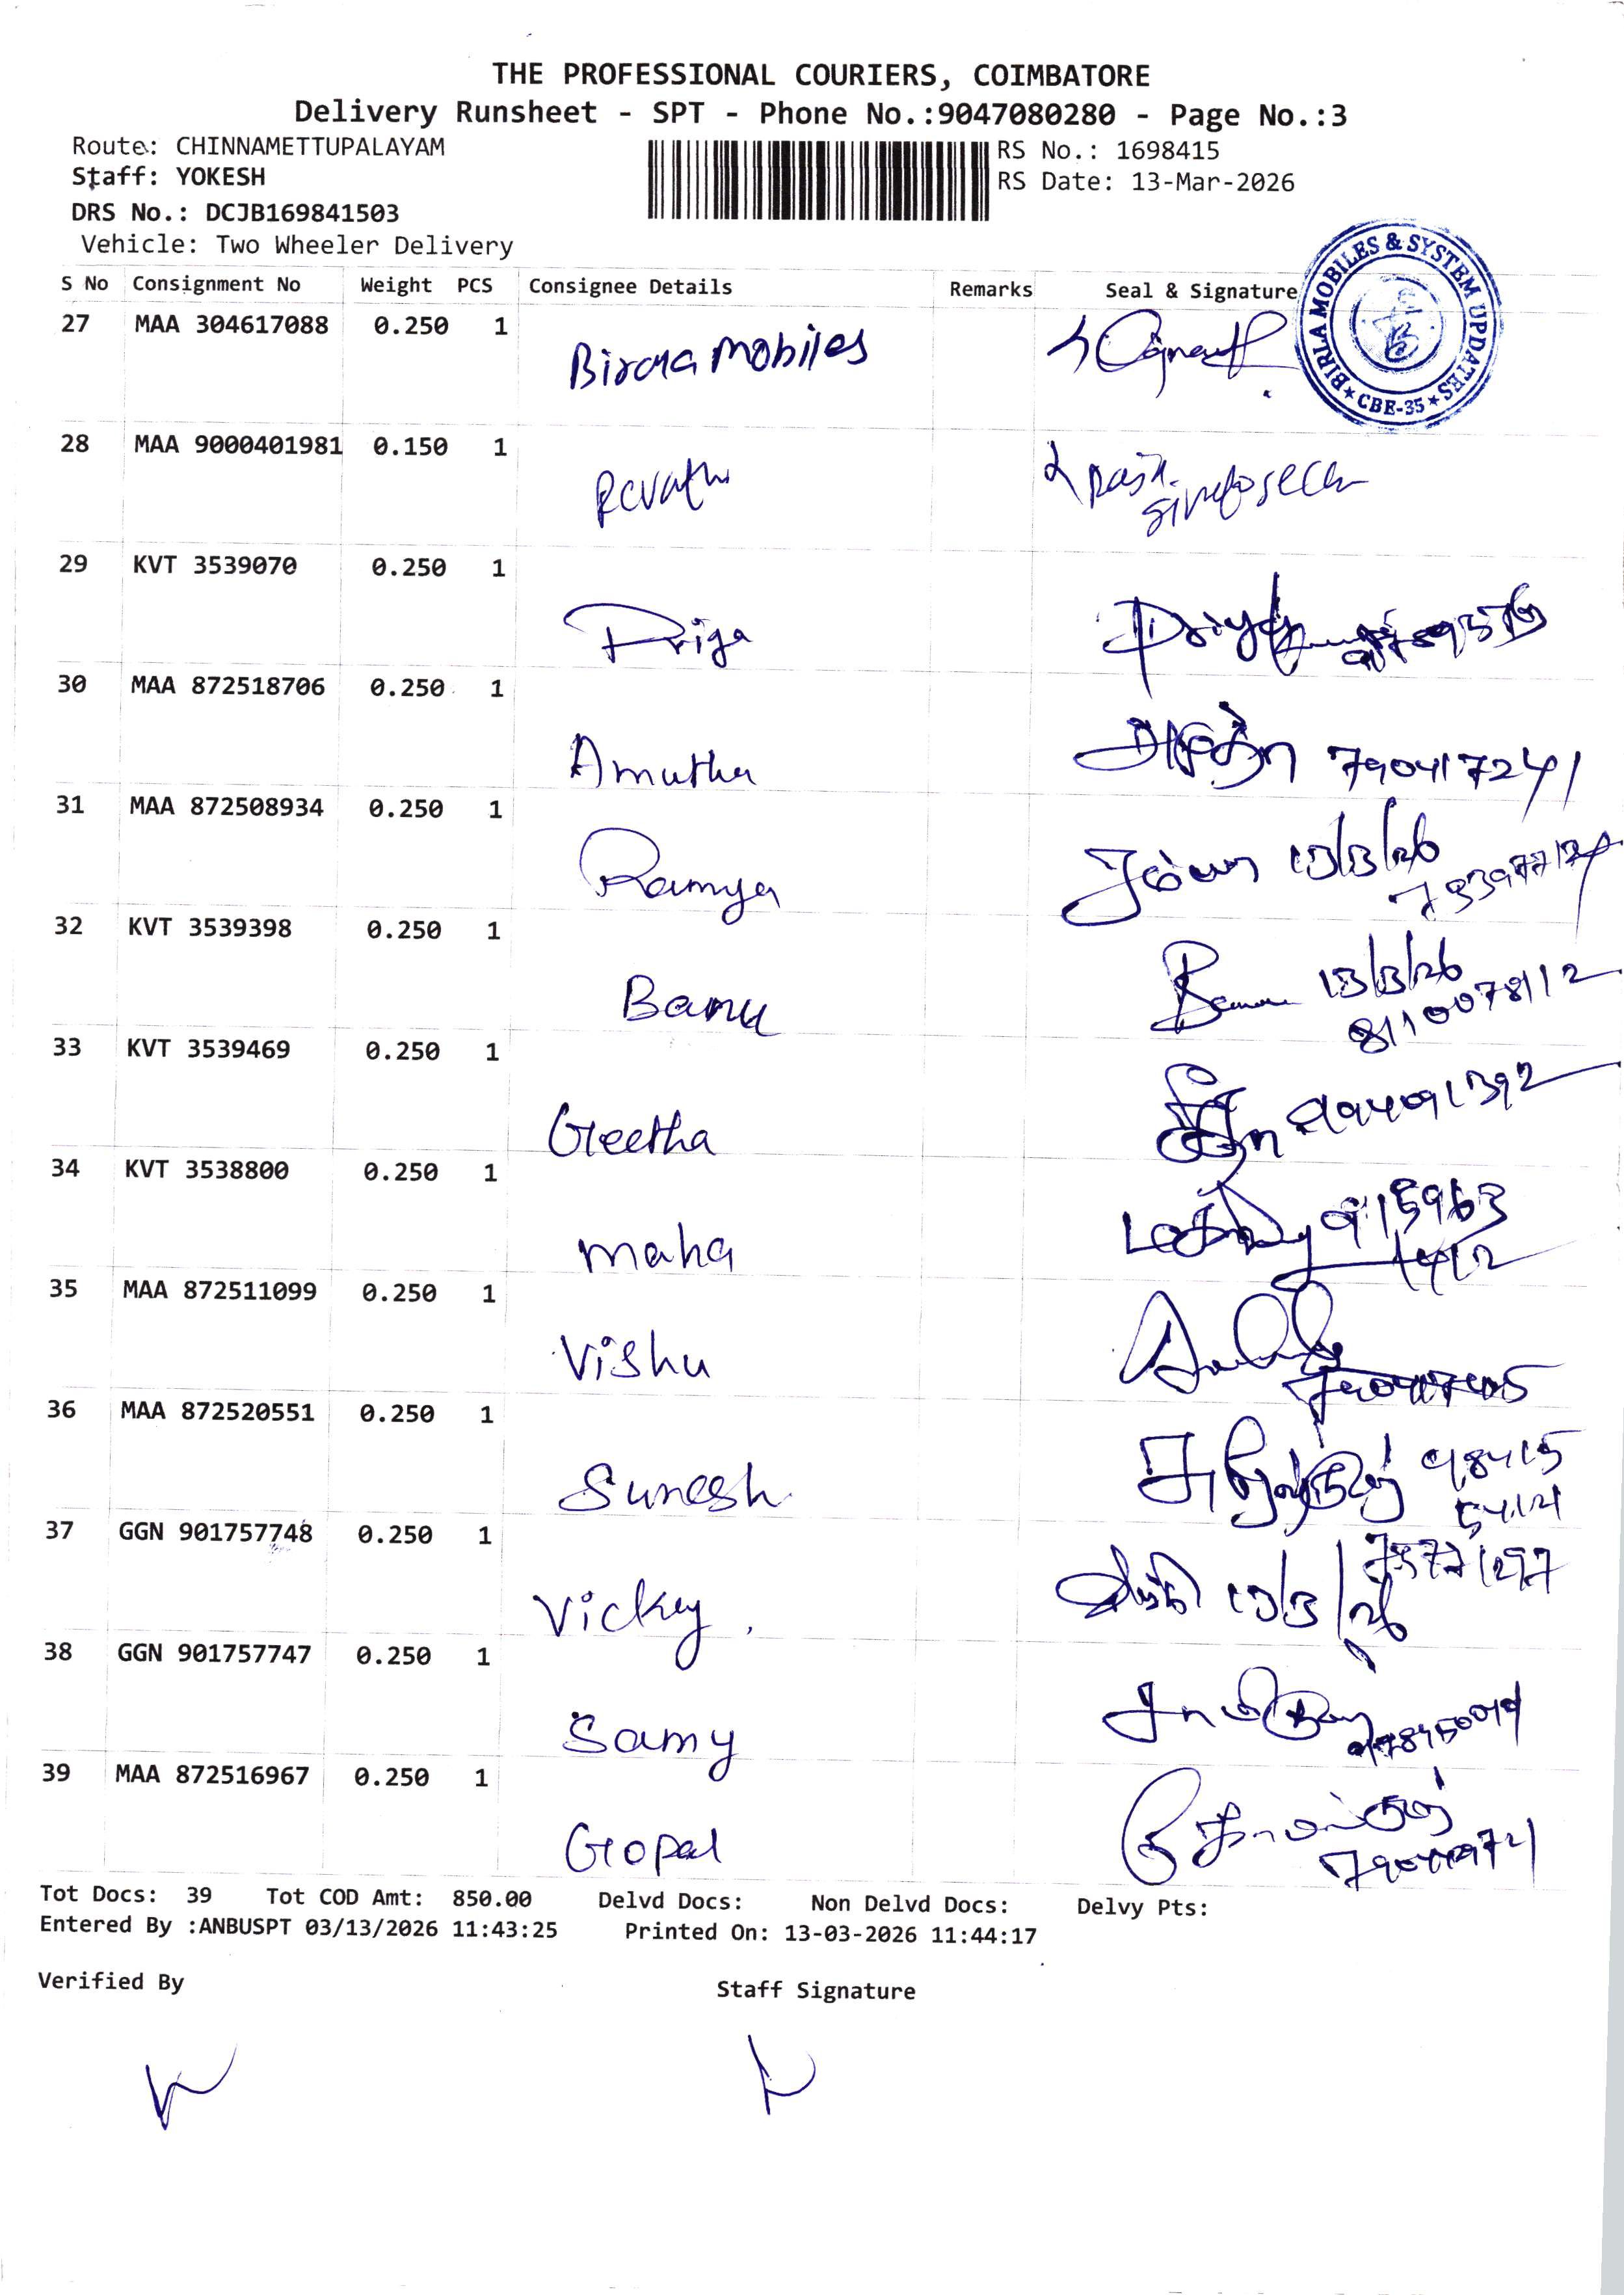 THE PROFESSIONAL COURIERS, COIMBATORE
Delivery Runsheet - SPT - Phone No.:9047080280 - Page No.:3
Route: CHINNAMETTUPALAYAM
RS No.: 1698415
Staff: YOKESH
RS Date: 13-Mar-2026
DRS No.: DCJB169841503
Vehicle: Two Wheeler Delivery
BIRLA MOBILES & SYSTEM UPDATES
★ CBE-35 ★
S No Consignment No Weight PCS Consignee Details Remarks Seal & Signature
27 MAA 304617088 0.250 1 mobiles
28 MAA 9000401981 0.150 1 Revathi
29 KVT 3539070 0.250 1 Priya Priya
30 MAA 872518706 0.250 1 Amutha 790417241
31 MAA 872508934 0.250 1 Ramya 13/3/26
32 KVT 3539398 0.250 1 Banu 13/3/26
8110078112
33 KVT 3539469 0.250 1 Geetha
34 KVT 3538800 0.250 1 maha 915963
1412
35 MAA 872511099 0.250 1 Vishu
36 MAA 872520551 0.250 1 Suresh 98415
37 GGN 901757748 0.250 1 Vicky 13/3/26
38 GGN 901757747 0.250 1 Samy
39 MAA 872516967 0.250 1 Gopal
Tot Docs: 39 Tot COD Amt: 850.00 Delvd Docs: Non Delvd Docs: Delvy Pts:
Entered By :ANBUSPT 03/13/2026 11:43:25 Printed On: 13-03-2026 11:44:17
Verified By Staff Signature